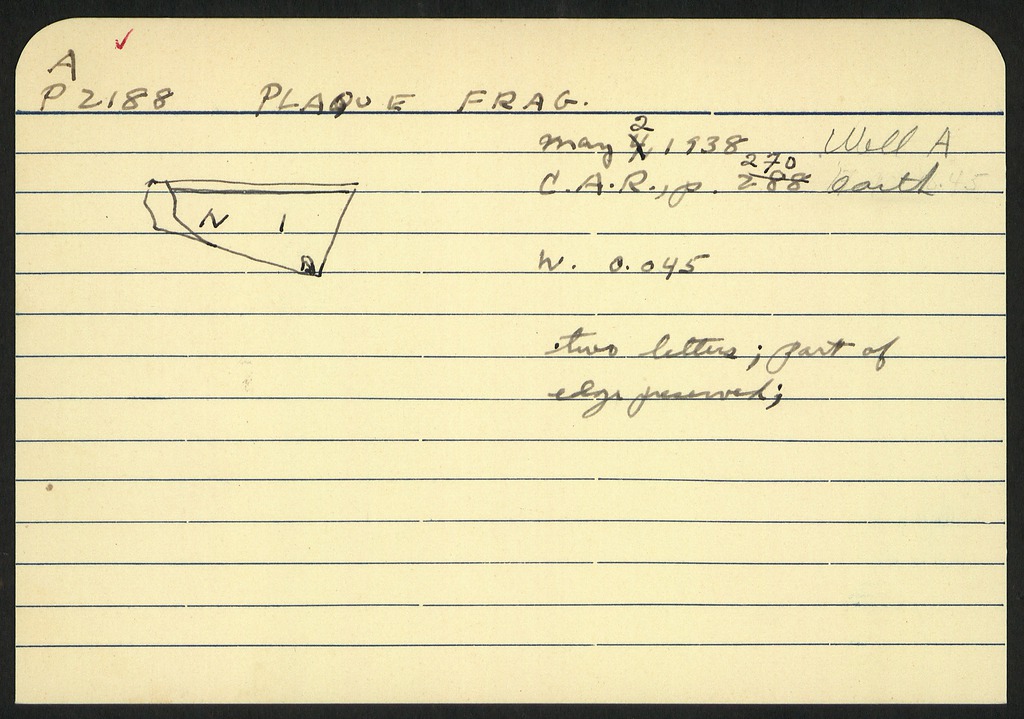 A
P 2188 PLAQUE FRAG.
May 2 1938 Well A
270
C.A.R., p. 288 earth
N I
W. 0.045
two letters; part of
edge preserved;